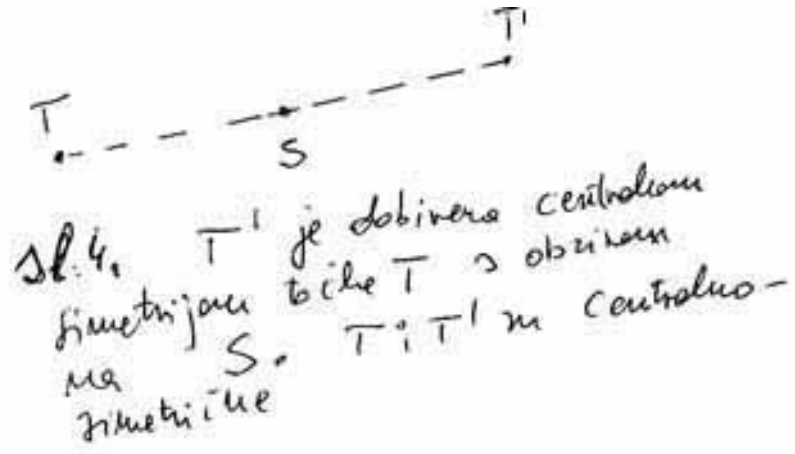 T'
T
S
sl. 4. T' je dobivena centralnom
simetrijom točke T s obzirom
na S. T i T' su centralno-
simetrične